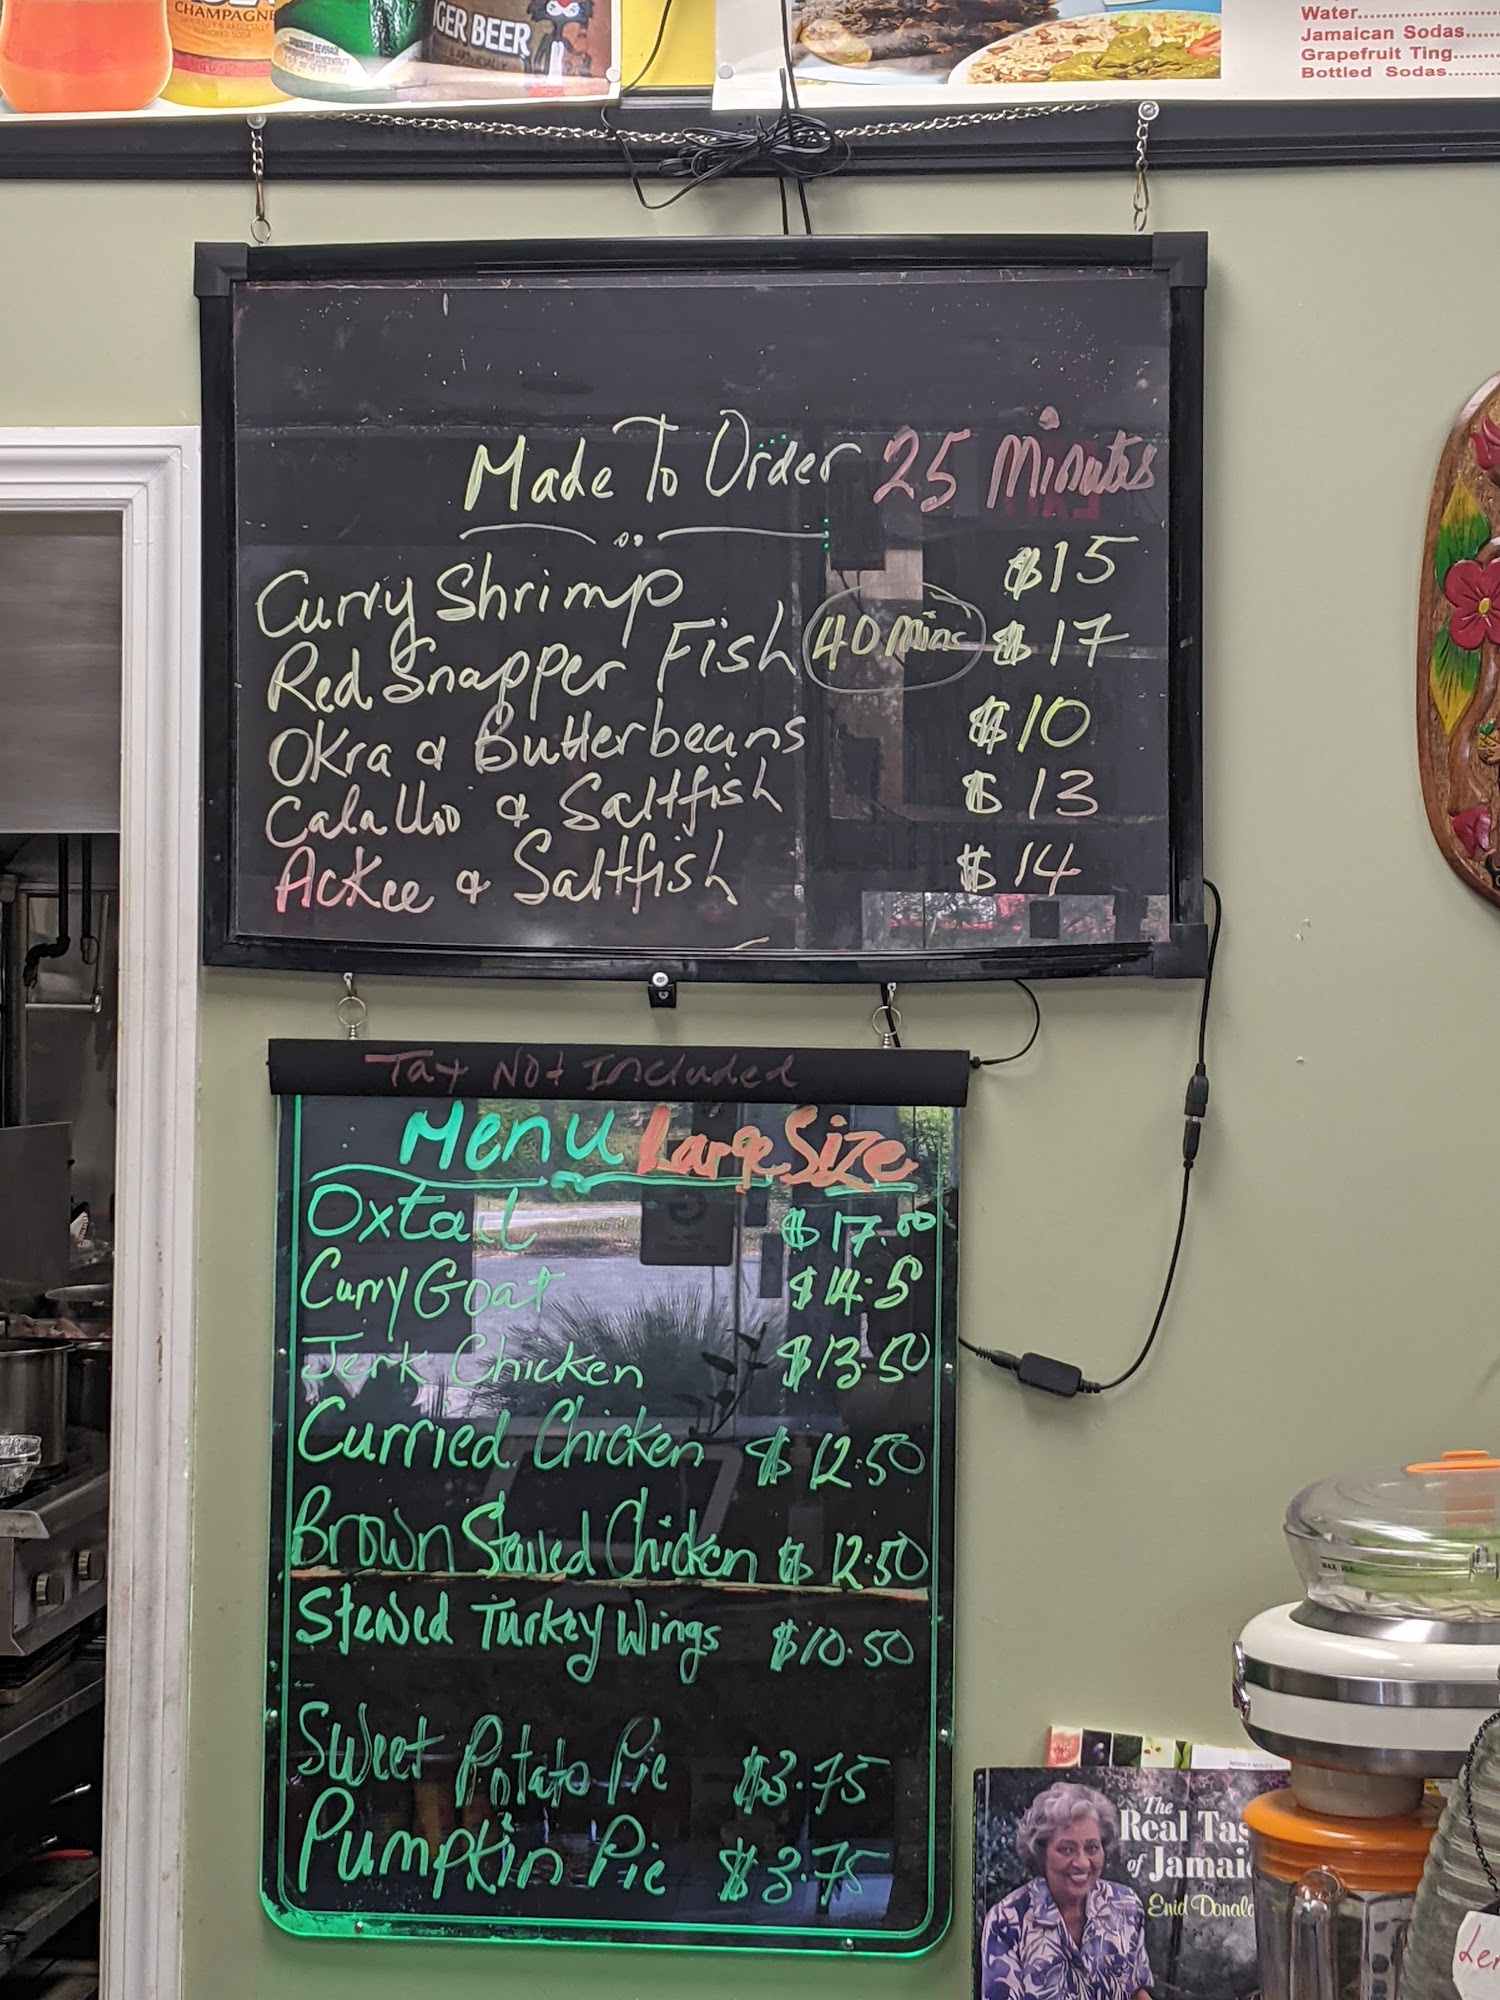 CHAMPAGNE
GER BEER
Water
Jamaican Sodas
Grapefruit Ting
Bottled Sodas
Made To Order 25 Minutes
Curry Shrimp $15
Red Snapper Fish 40 Mins $17
Okra & Butterbeans $10
Calalloo & Saltfish $13
Ackee & Saltfish $14
Tax Not Included
Menu Large Size
Oxtail $17.00
Curry Goat $14.5
Jerk Chicken $13.50
Curried Chicken $12.50
Brown Stewed Chicken $12.50
Stewed Turkey Wings $10.50
Sweet Potato Pie $3.75
Pumpkin Pie $3.75
The
Real Tas
of Jamaic
Enid Donald